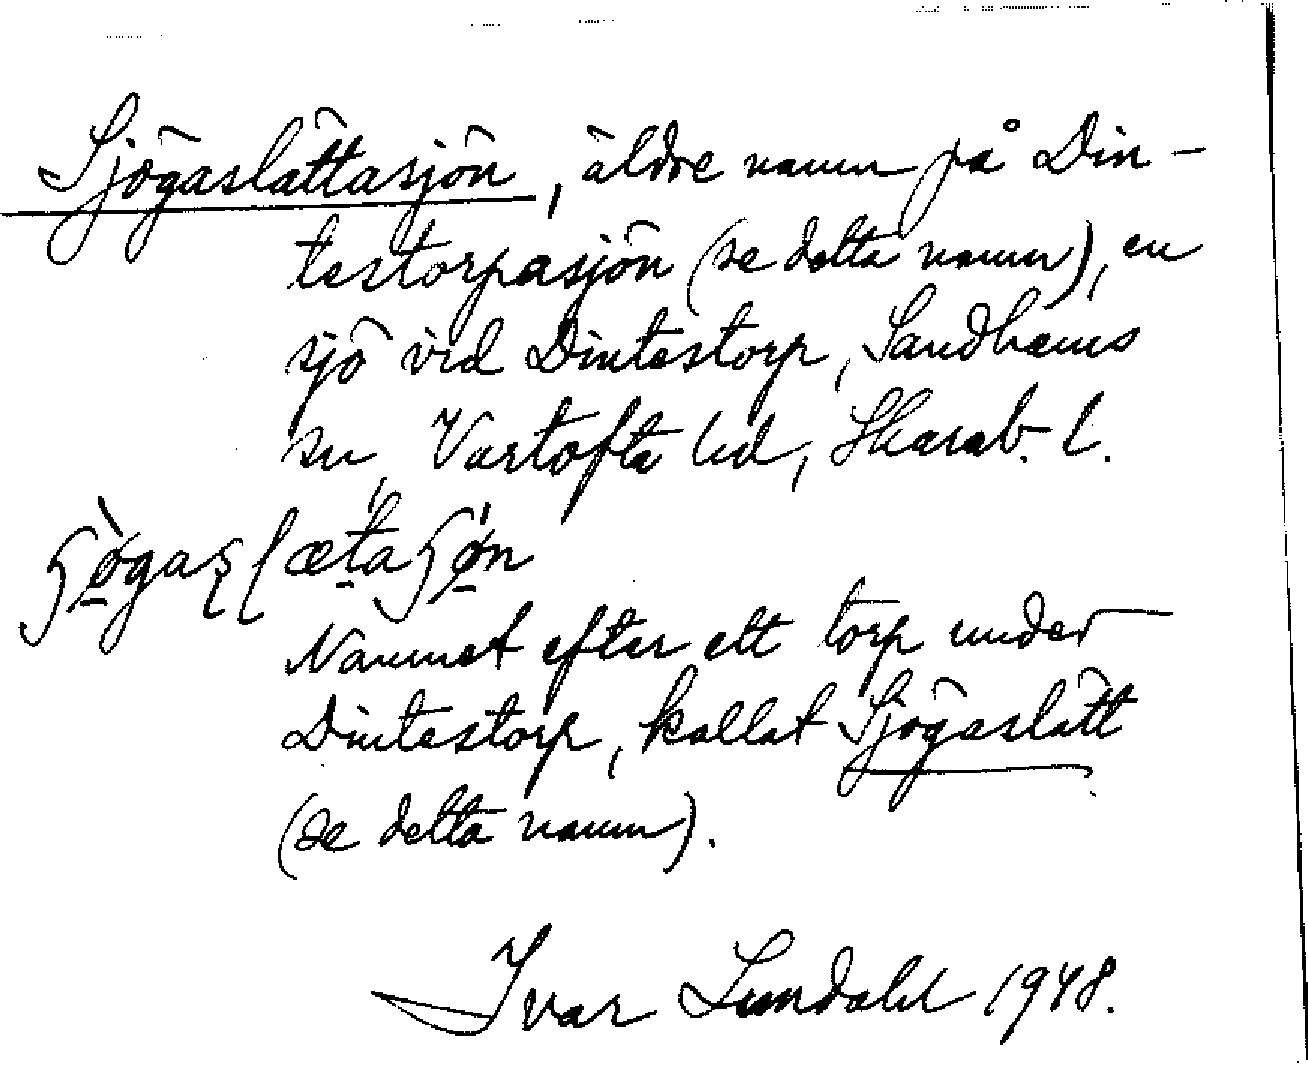 Sjögaslättasjön, äldre namn på Din-
testorpasjön (se detta namn), en
sjö vid Dintestorp, Sandhems
sn, Vartofta hd, Skarab. l.
Namnet efter ett torp under
Dintestorp, kallat Sjögaslätt
(se detta namn).
Ivar Lundahl 1948.